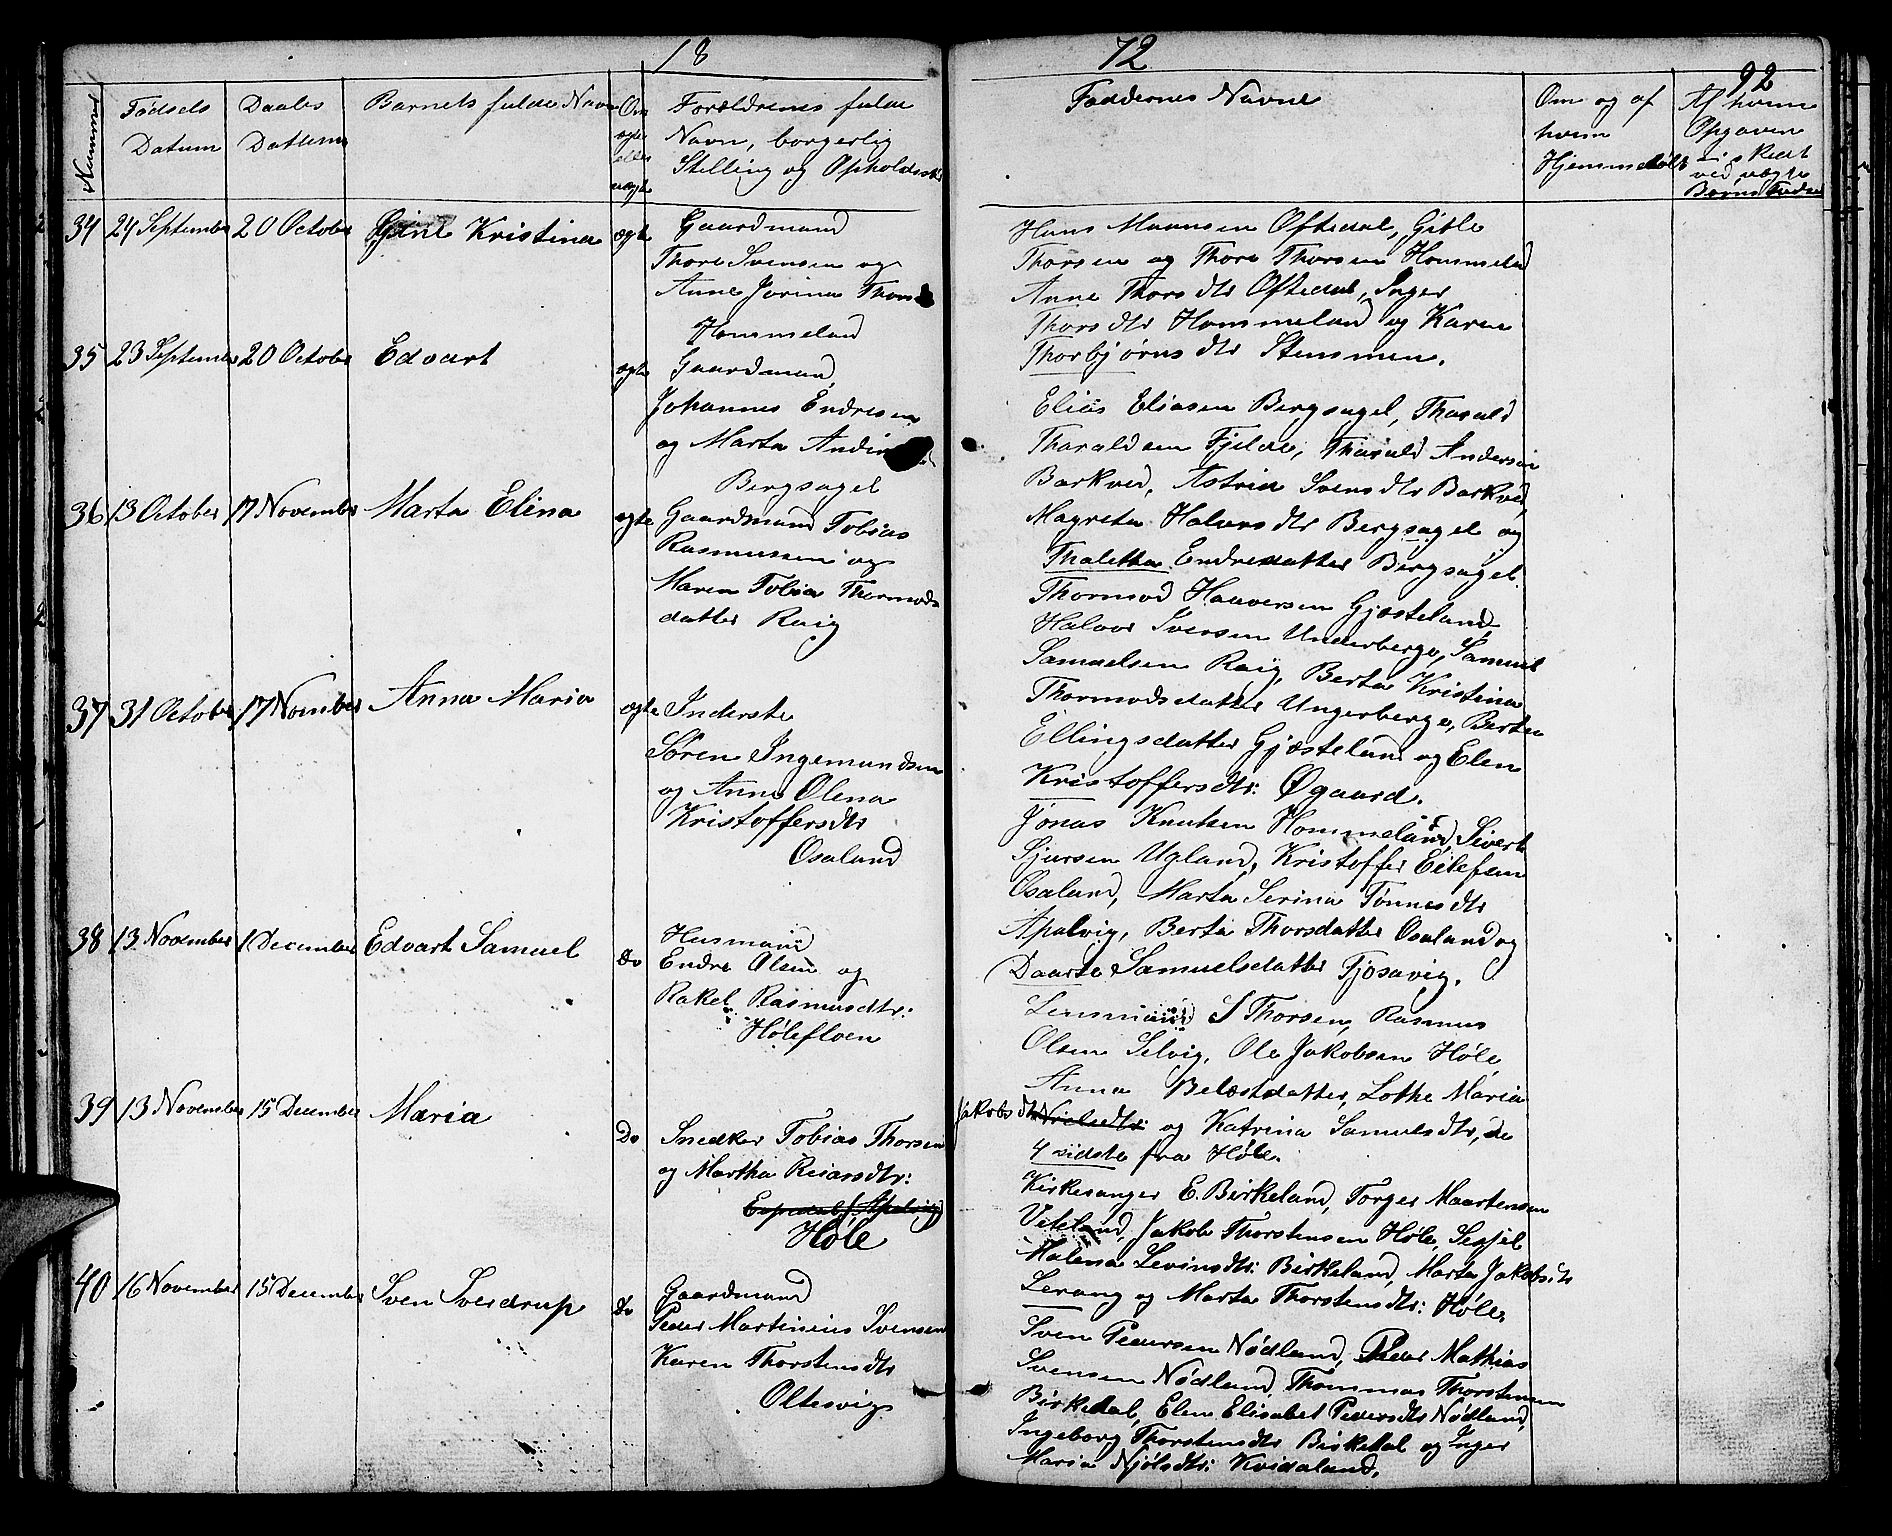 18
72
92
Nummer
Fødsels
Datum
Daabs
Dattum
Barnets fulde Navn
Om
ægte
eller
uægte
Forældrenes fulde
Navn, borgerlig
Stilling og Opholdsst
Faddernes Navne
Om og af
hvem
Hjemmedøbt
Af hvem
Opgaven
er skeet
ved uægte
Børns
34 24 September 20 October Kristina ægte
Gaardmand
Thore Svensen og
Anne Jorina Thors
Hommeland
Hans Maansen Oftedal, Gitle
Thorsen og Thore Thorsen Hommeland
Anne Thorsdtr Oftedal, Inger
Thorsdtr Hommeland og Karen
Thorbjørnsdtr Stemmen.
35 23 September 20 October Edvart ægte
Gaardmand
Johannes Endresen
og Marta
Bergsagel
Elias Eliasen Bergsagel, Tharald
Tharaldsen Fjelde, Tharald Andersen
Barkved, Astrid Svensdtr Barkved,
Magreta Halvorsdtr Bergsagel og
Thaletta Endredatter Bergsagel.
36 13 October 17 November Marta Elina ægte
Gaardmand Tobias
Rasmussen og
Maren Tobia Thormods
datter Raig
Thormod Haaversen Gjøsteland
Halvor Svensen Underberge, Samuel
Samuelsen Raig, Berta Kristina
Thormodsdatter Ungerberge, Berta
Ellingsdatter Gjøsteland og Elen
Kristoffersdtr: Øgaard.
37 31 October 17 Nomber Anna Maria ægte
Inderste
Søren Ingemundsen
og Anne Olena
Kristoffersdtr
Osaland
Jonas Knutsen Hommeland, Sivert
Sjursen Ugland, Kristoffer Eilefsen
Osaland, Marta Serina Tønnesdtr
Apalvig, Berta Thorsdatter Osaland og
Daarte Samuelsdatter Fjosavig.
38 13 November 1 December Edvart Samuel Do
Husmand
Endre Olsen og
Rakel Rasmusdtr:
Hølefloen
Lensmand S Thorsen, Rasmus
Olsen Selvig, Ole Jakobsen Høle,
Anna Belæstdatter, Lothe Maria
Jakobsdtr Nielsdtr: og Katrina Samuelsdtr, de
4 sidste fra Høle.
39 13 November 15 December Maria Do
Snedker Tobias Thorsen
og Martha Reiarsdtr:
Espedal / Apalvig
Høle
Kirkesanger E. Birkeland, Torger Maartensen
Veteland, Jakob Thorstensen Høle, Segjel
Malena Levinsdtr: Birkeland, Marta Jakobsdtr
Lerang og Marta Thorstensdtr: Høle,
40 16 November 15 December Sven Sverdrup Do
Gaardmand
Peder Martinius Svensen
Karen Thorstensdtr
Oltesvig
Sven Pedersen Nødland, Peder Mathias
Svensen Nødland, Thommas Thorstensen
Birkedal, Elen Elisabet Pedersdtr Nødland,
Ingeborg Thorstensdtr Birkedal og Inger
Maria Njølsdtr: Kvidaland.